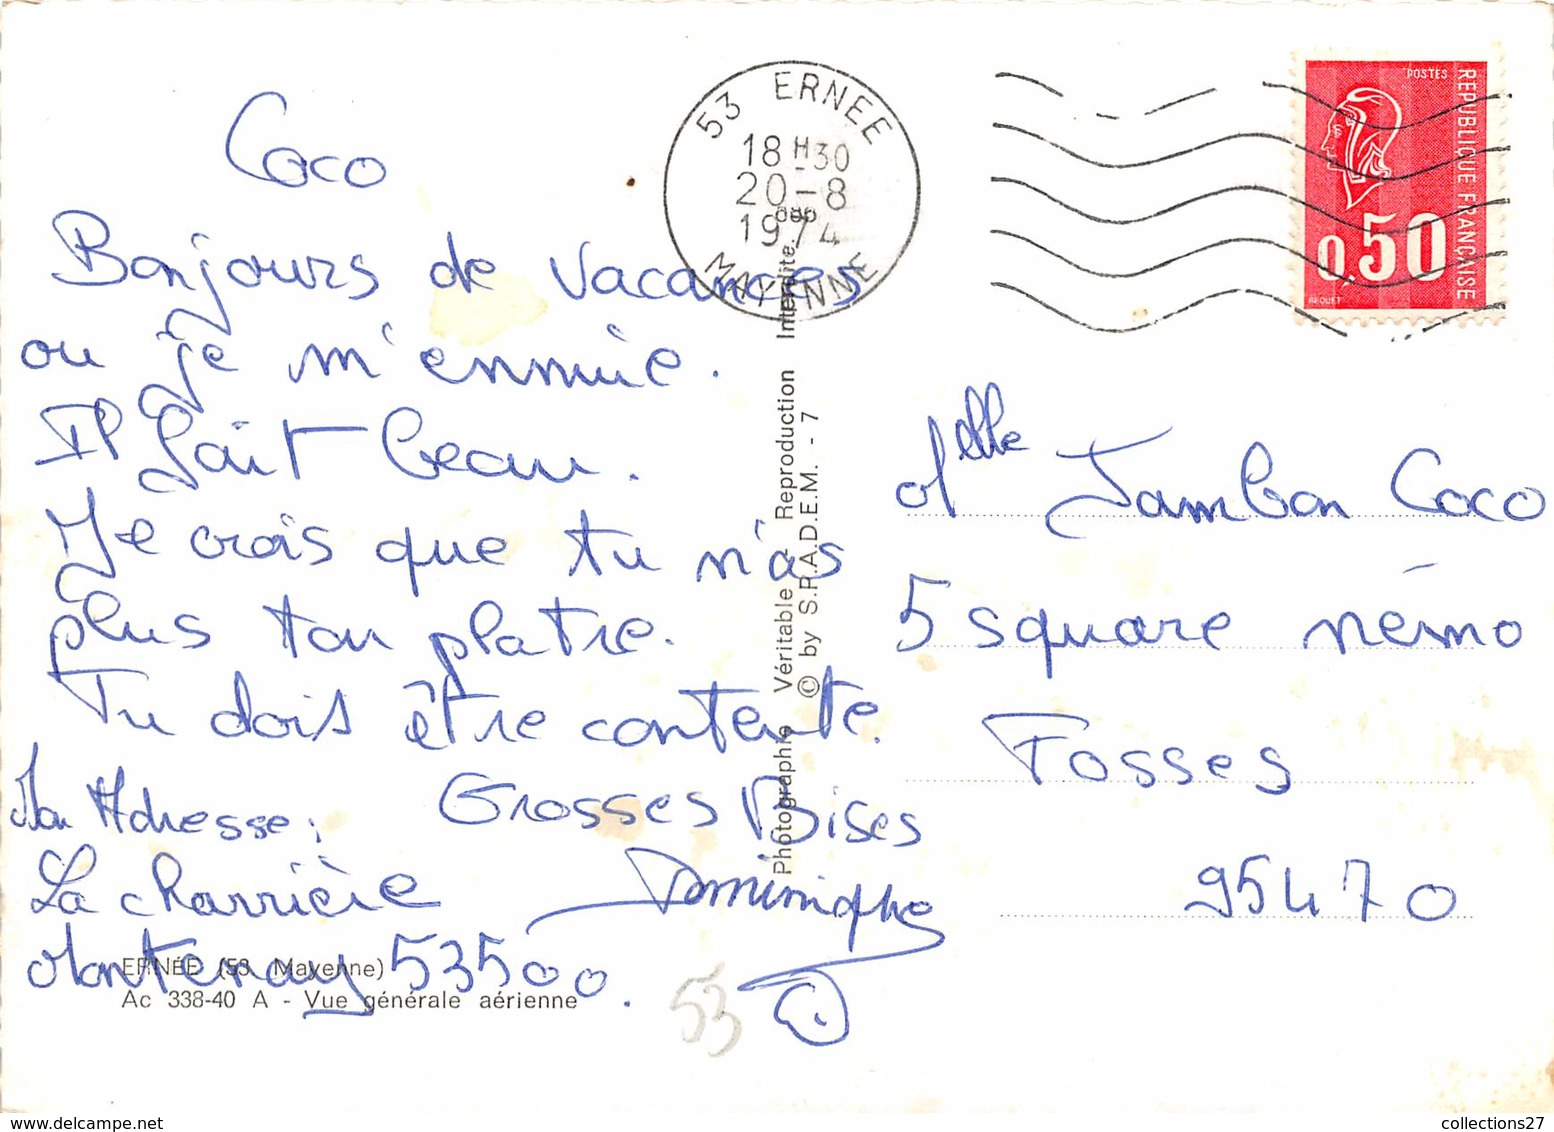 Coco
Bonjours de vacances
ou je m'ennuie.
Il fait beau.
Je crois que tu n'as
plus ton platre.
Tu dois être contente.
Grosses Bises
Dominique
Mon Adresse:
La charrière
Montenay 53500.
ERNÉE (53 Mayenne)
Ac 338-40 A - Vue générale aérienne
53
Photographie Véritable - Reproduction Interdite.
© by S.P.A.D.E.M. - 7
53 ERNEE
18H30
20-8
1974
MAYENNE
POSTES
REPUBLIQUE FRANÇAISE
0,50
BEQUET
Mlle Jambon Coco
5 square némo
Fosses
95470
www.delcampe.net
collections27